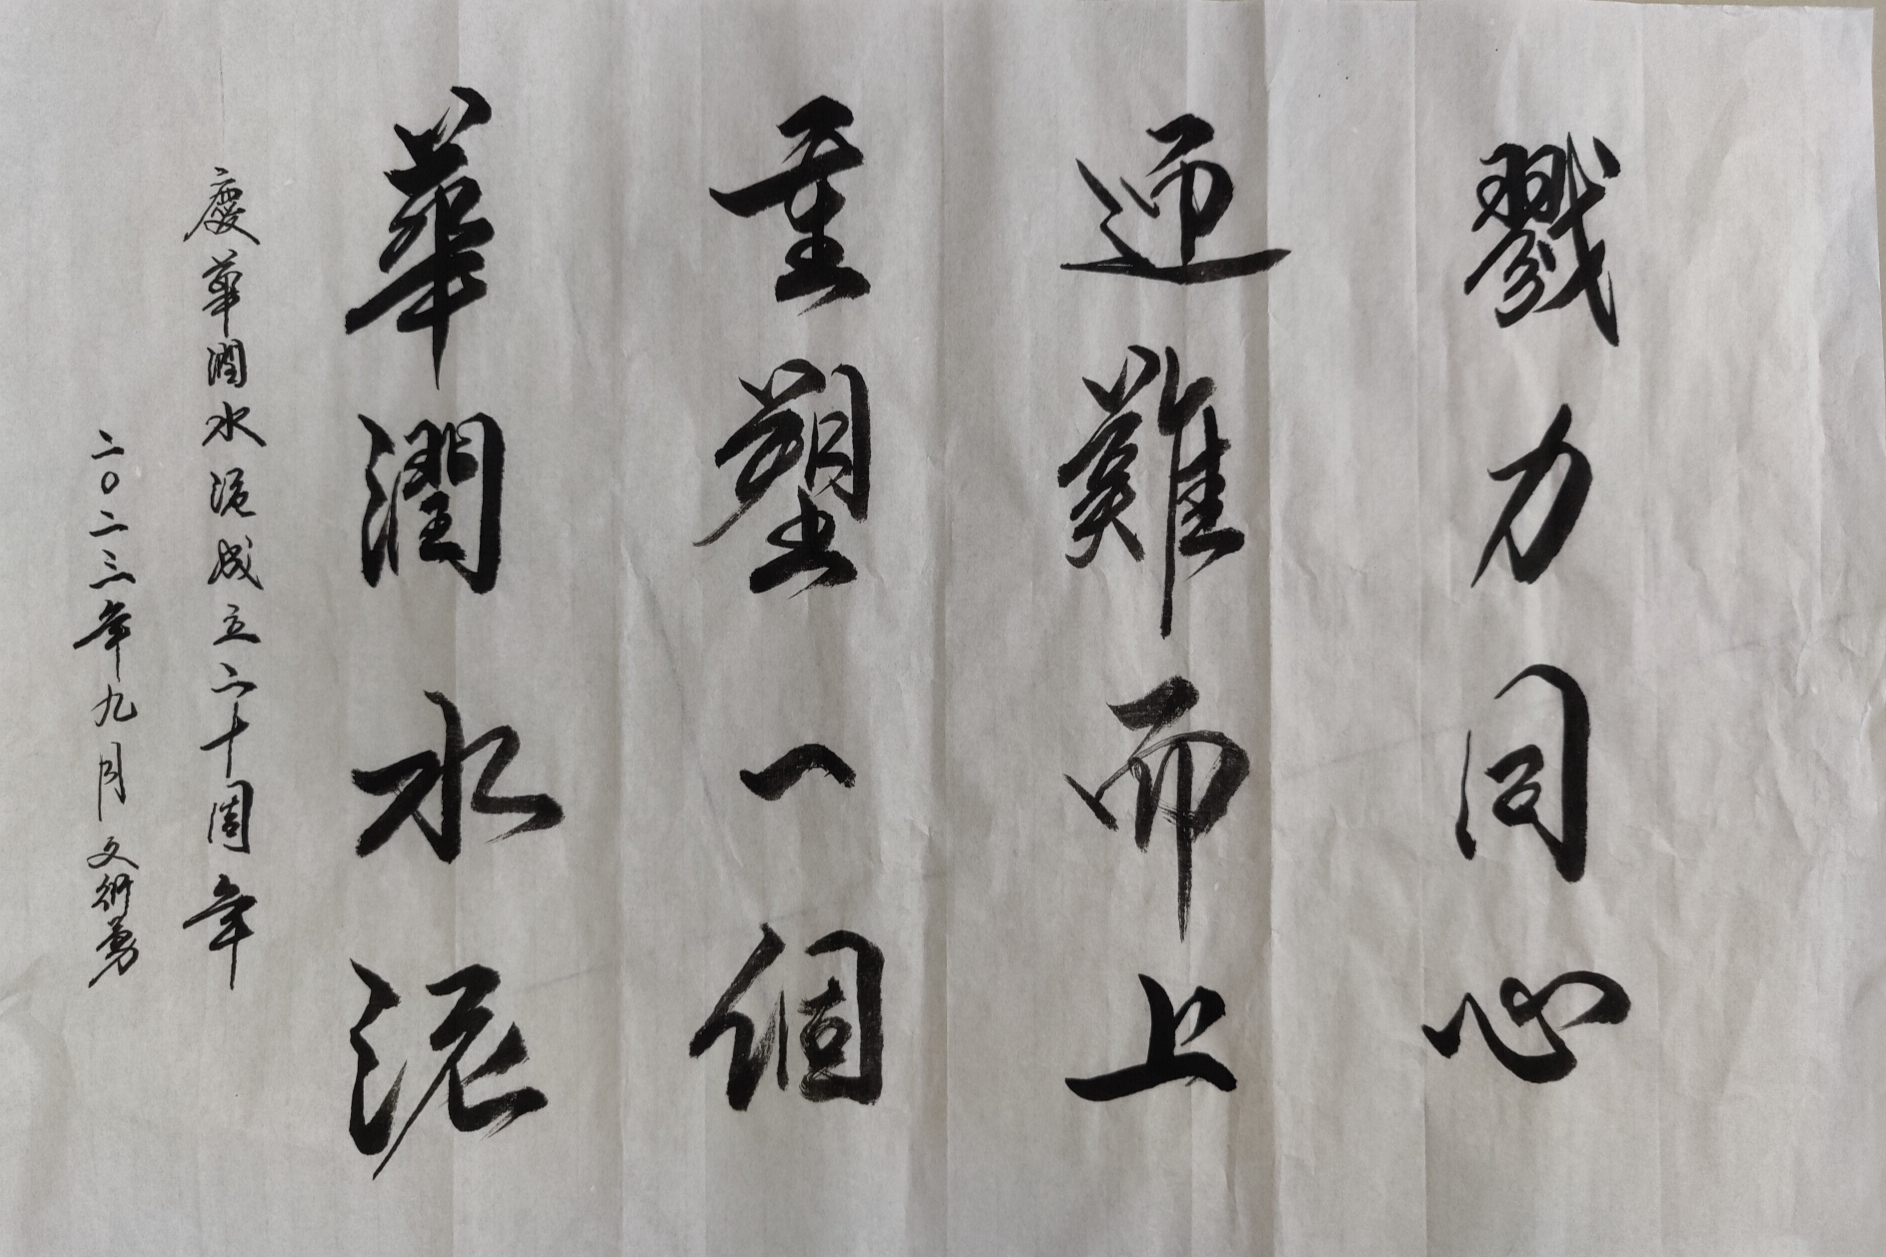 戮力同心
迎難而上
重塑一個
華潤水泥
慶華潤水泥成立二十周年
二〇二三年九月 文術勇